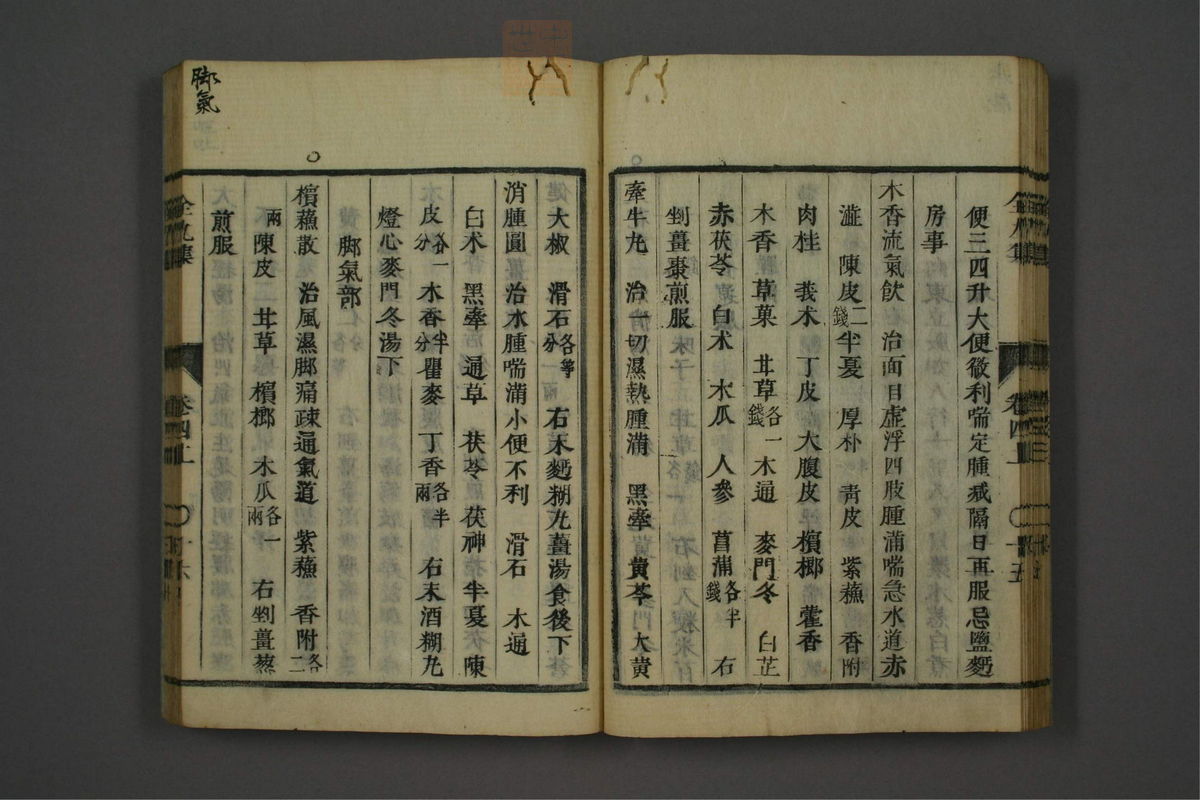 便三四升大便微利喘定腫减隔日再服忌鹽麪
房事
木香流氣飲 治面目虛浮四肢腫滿喘急水道赤
澁 陳皮二錢 半夏 厚朴 靑皮 紫蘓 香附
肉桂 莪朮 丁皮 大腹皮 檳榔 藿香
木香 草菓 甘草各一錢 木通 麥門冬 白芷
赤茯苓 白朮 木瓜 人參 菖蒲各半錢 右
剉薑棗煎服
牽牛丸 治一切濕熱腫滿 黑牽 黄芩 大黄
大椒 滑石各等分 右末麪糊丸薑湯食後下
消腫圓 治水腫喘滿小便不利 滑石 木通
白朮 黑牽 通草 茯苓 茯神 半夏 陳
皮各一分 木香半分 瞿麥 丁香各半兩 右末酒糊丸
燈心麥門冬湯下
脚氣部
檳蘓散 治風濕脚痛疎通氣道 紫蘓 香附各二
兩 陳皮 甘草 檳榔 木瓜各一兩 右剉薑葱
煎服
脚氣
卷四上
十五
卷四上
十六